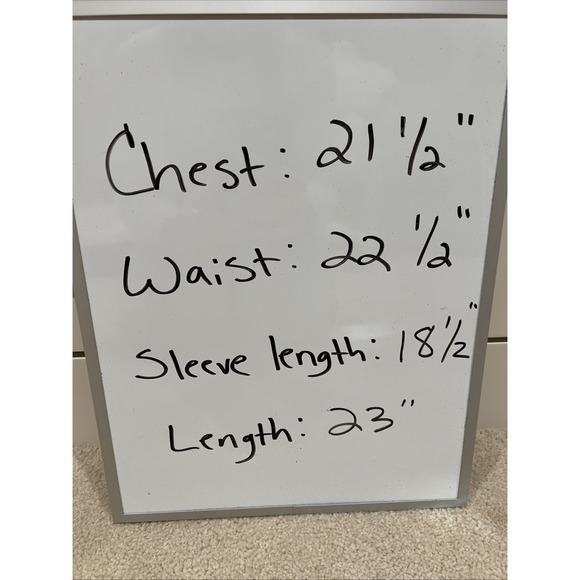 Chest: 21 1/2"
Waist: 22 1/2"
Sleeve length: 18 1/2"
Length: 23"